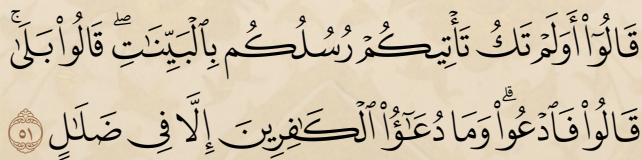 قَالُوٓا۟ أَوَلَمْ تَكُ تَأْتِيكُمْ رُسُلُكُم بِٱلْبَيِّنَٰتِ ۖ قَالُوا۟ بَلَىٰ ۚ
قَالُوا۟ فَٱدْعُوا۟ ۗ وَمَا دُعَٰٓؤُا۟ ٱلْكَٰفِرِينَ إِلَّا فِى ضَلَٰلٍ ٥١